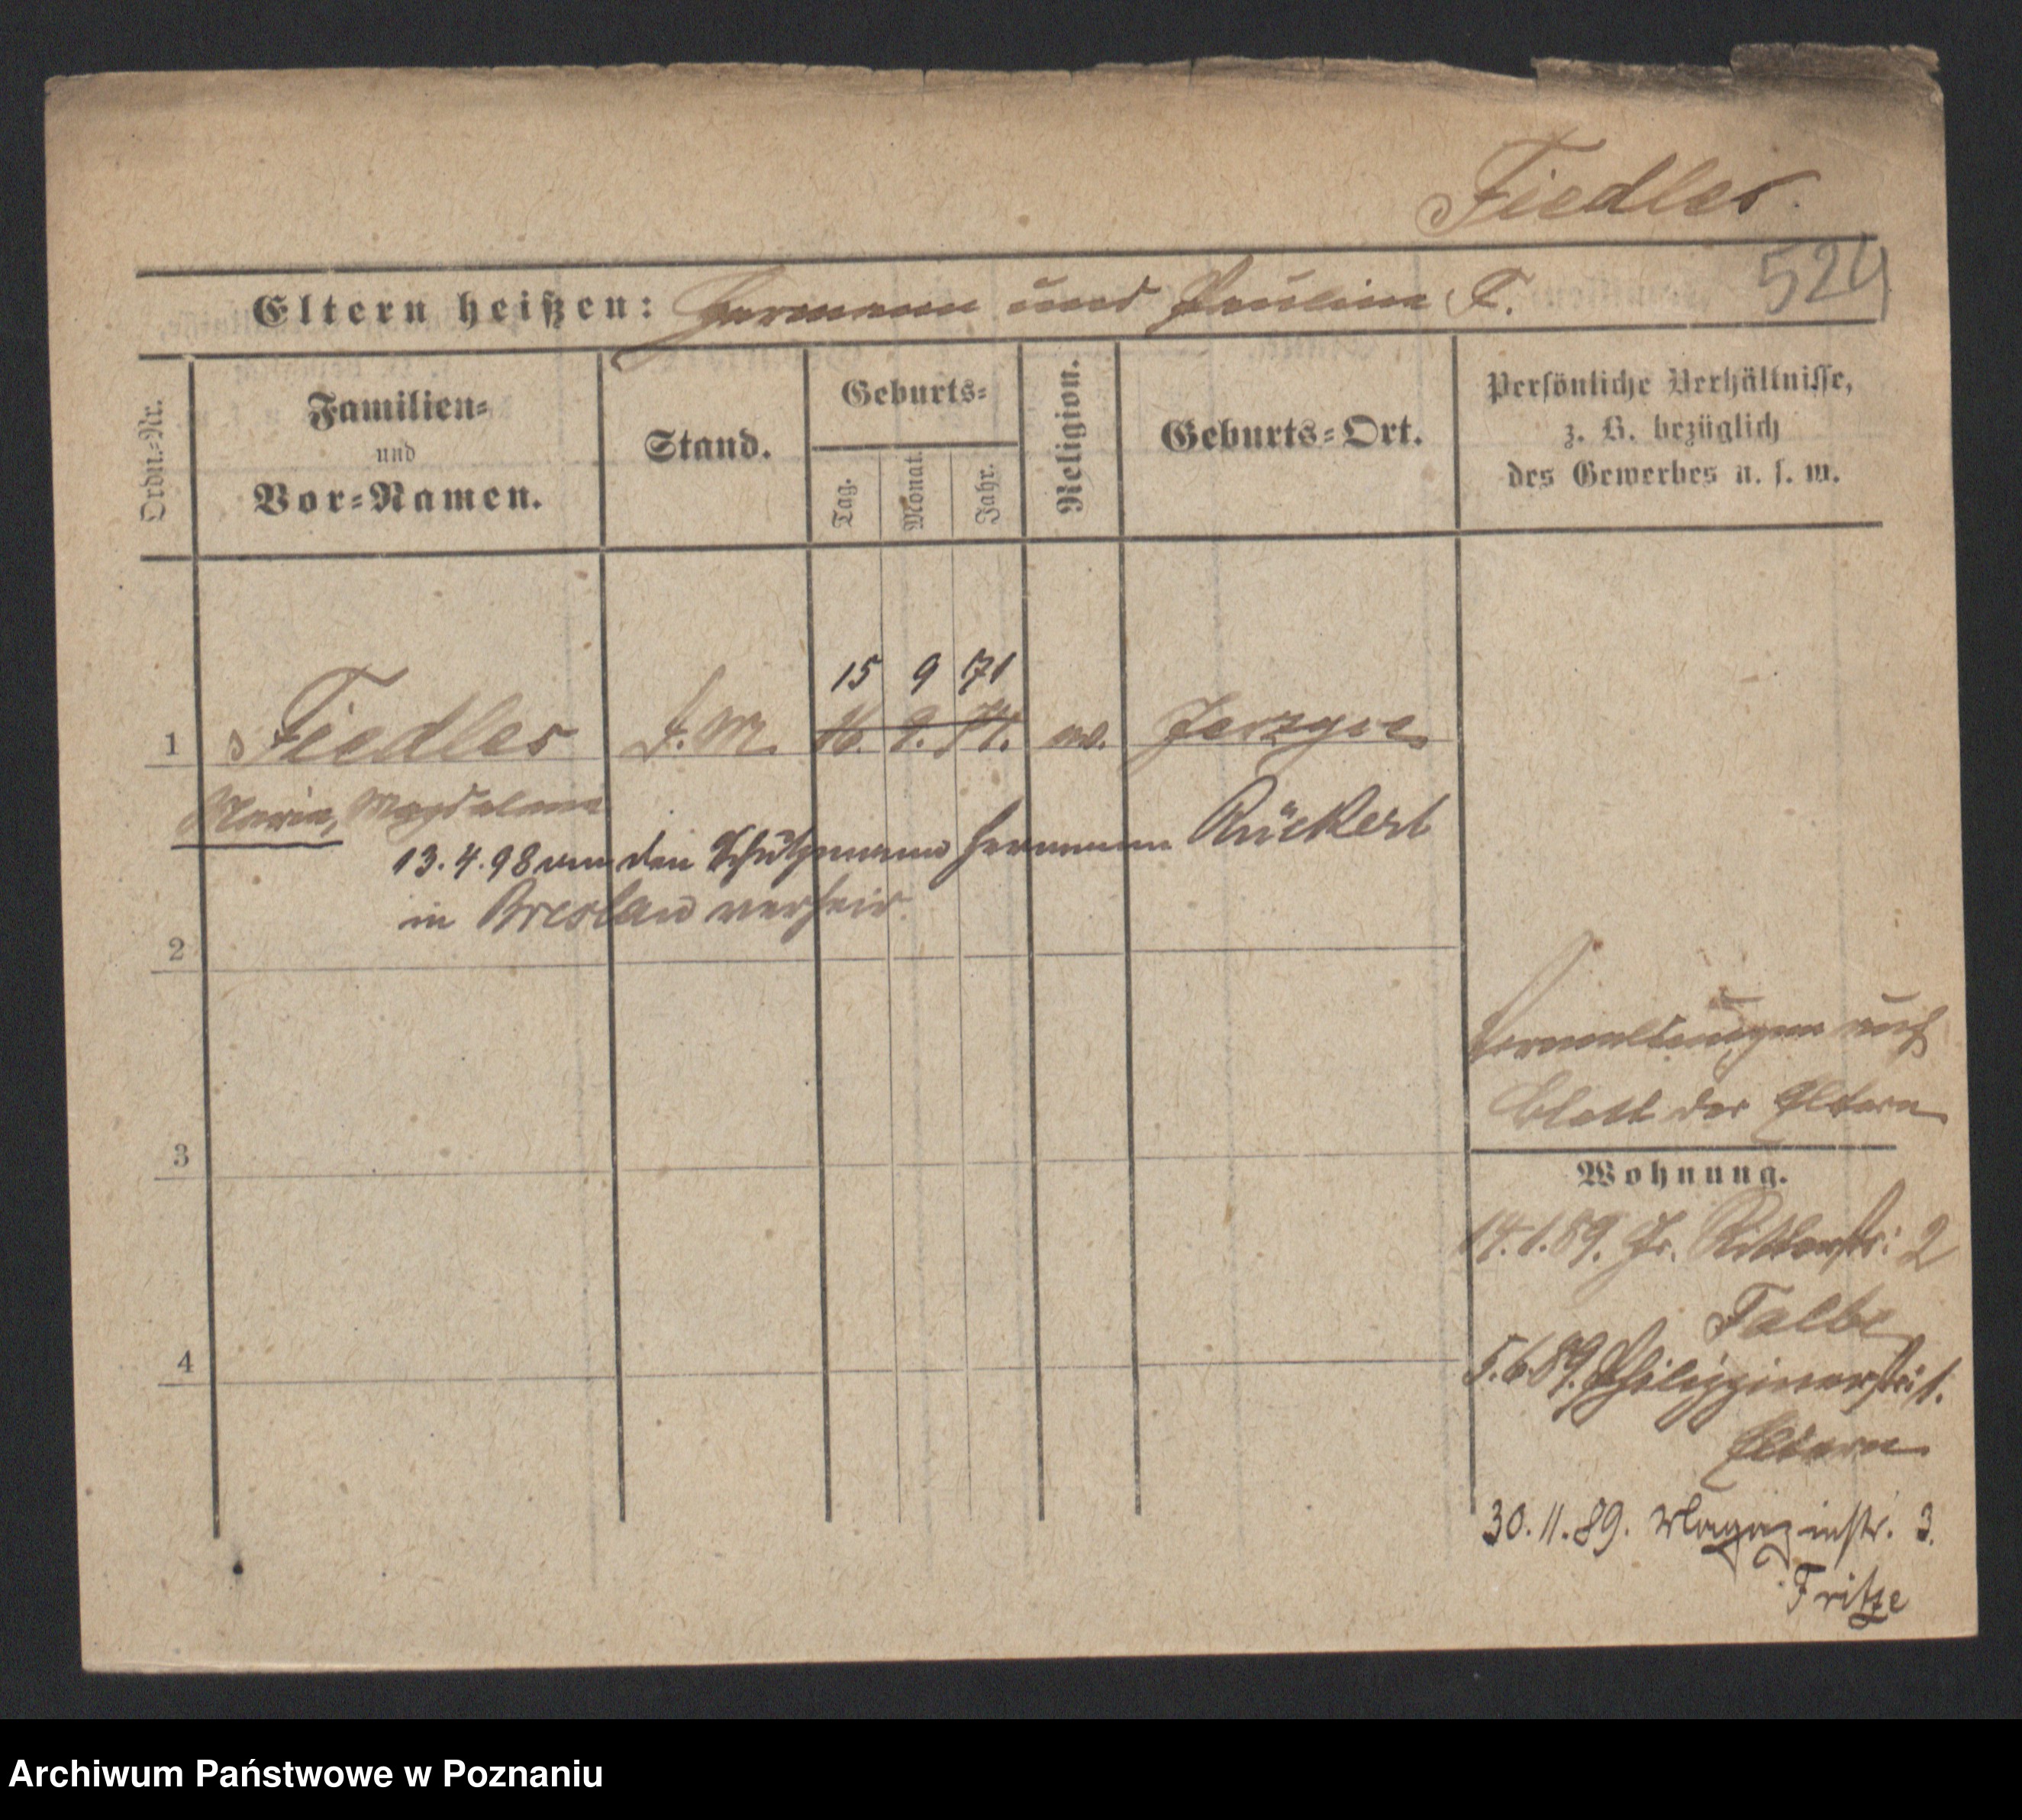 Fiedler.
524
Eltern heißen: Hermann und Pauline F.
Ordn.=Nr.
Familien=
und
Vor=Namen.
Stand.
Geburts=
Tag.
Monat.
Jahr.
Religion.
Geburts=Ort.
Persönliche Verhältnisse,
z. B. bezüglich
des Gewerbes u. s. w.
15 9 71
1 Fiedler d. M. 16. 9. 71. ev. Jerzyce
Maria, Magdalena
13.4.98 den Schutzmann Hermann Rückert
in Breslau verheir.
2
3
4
auf
blatt der Eltern
Wohnung.
14.1.89. Gr. Ritterstr: 2
Falbe
5.6.89. Philippinerstr: 1.
Eltern
30.11.89. Magazinstr. 3.
Fritze
Archiwum Państwowe w Poznaniu